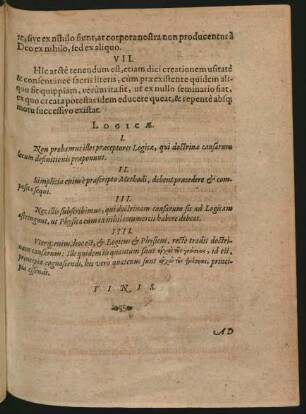 te, sive ex nihilo fiunt, at corpora nostra non producentur à
Deo ex nihilo, sed ex aliquo.
VII.
Hîc arctè tenendum est, etiam dici creationem usitatè
& consentaneè sacris literis, cum præexistente quidem ali-
quo fit quippiam, verùm ita fit, ut ex nullo seminario fiat,
ex quo creata potestas idem educere queat, & repentè absq;
motu successivo existat.
LOGICÆ.
I.
Non probamus illos præceptores Logicæ, qui doctrinæ causarum
locum definitionis præponunt.
II.
Simplicia enim è præscripto Methodi, debent præcedere & com-
posita sequi.
III.
Nec illis subscribimus, qui doctrinam causarum sic ad Logicam
astringunt, ut Physica cum ea nihil commercii habere debeat.
IIII.
Uterq; enim, hoc est, & Logicus & Physicus, rectè tradit doctri-
nam causarum: Ille quidem in quantum sunt ἀρχαὶ τῶν γνώσεων, id est,
principia cognoscendi, hic verò quatenus sunt ἀρχαὶ τῶν πράξεων, princi-
pia essendi.
FINIS.
AD